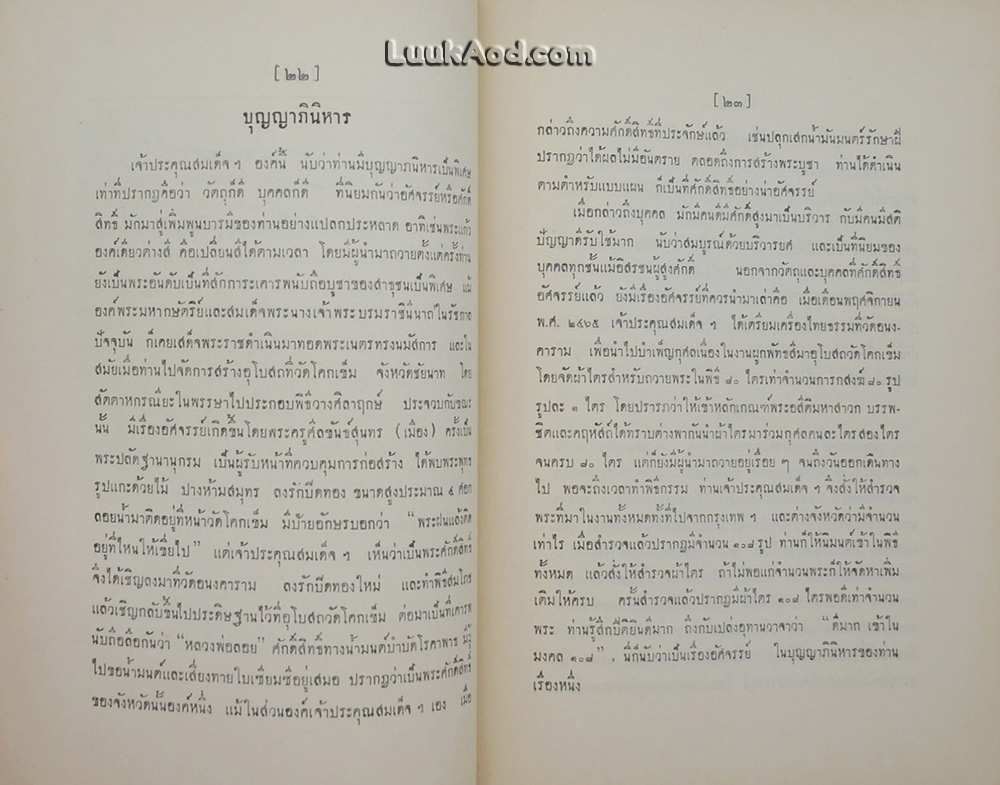 LuukAod.com
[ ๒๒ ]
บุญญาภินิหาร
เจ้าประคุณสมเด็จ ฯ องค์นี้ นับว่าท่านมีบุญญาภินิหารเป็นพิเศษ
เท่าที่ปรากฏคือว่า วัตถุก็ดี บุคคลก็ดี ที่นิยมกันว่าอัศจรรย์หรือศักดิ์
สิทธิ์ มักมาสู่เพิ่มพูนบารมีของท่านอย่างแปลกประหลาด อาทิเช่นพระแก้ว
องค์เดียวต่างสี คือเปลี่ยนสีได้ตามเวลา โดยมีผู้นำมาถวายตั้งแต่ครั้งท่าน
ยังเป็นพระอันดับเป็นที่สักการะเคารพนับถือบูชาของสาธุชนเป็นพิเศษ แม้
องค์พระมหากษัตริย์และสมเด็จพระนางเจ้าพระบรมราชินีนาถในรัชกาล
ปัจจุบัน ก็เคยเสด็จพระราชดำเนินมาทอดพระเนตรทรงนมัสการ และใน
สมัยเมื่อท่านไปจัดการสร้างอุโบสถที่วัดโคกเข็ม จังหวัดชัยนาท โดย
สัตตาหกรณียะในพรรษาไปประกอบพิธีวางศิลาฤกษ์ ประจวบกับขณะ
นั้น มีเรื่องอัศจรรย์เกิดขึ้นโดยพระครูศีลขันธ์สุนทร (เมือง) ครั้งเป็น
พระปลัดฐานานุกรม เป็นผู้รับหน้าที่ควบคุมการก่อสร้าง ได้พบพระพุทธ
รูปแกะด้วยไม้ ปางห้ามสมุทร ลงรักปิดทอง ขนาดสูงประมาณ ๕ ศอก
ลอยน้ำมาติดอยู่ที่หน้าวัดโคกเข็ม มีป้ายอักษรบอกว่า “พระฝนแล้งติด
อยู่ที่ไหนให้เขี่ยไป” แต่เจ้าประคุณสมเด็จ ฯ เห็นว่าเป็นพระศักดิ์สิทธิ์
จึงได้เชิญลงมาที่วัดอนงคาราม ลงรักปิดทองใหม่ และทำพิธีสมโภช
แล้วเชิญกลับขึ้นไปประดิษฐานไว้ที่อุโบสถวัดโคกเข็ม ต่อมาเป็นที่เคารพ
นับถือลือกันว่า “หลวงพ่อลอย” ศักดิ์สิทธิ์ทางน้ำมนต์บำบัดโรคาพาธ มีผู้
ไปขอน้ำมนต์และเสี่ยงทายใบเซียมซีอยู่เสมอ ปรากฏว่าเป็นพระศักดิ์สิทธิ์
ของจังหวัดนั้นองค์หนึ่ง แม้ในส่วนองค์เจ้าประคุณสมเด็จ ฯ เอง เมื่อ
[ ๒๓ ]
กล่าวถึงความศักดิ์สิทธิ์ที่ประจักษ์แล้ว เช่นปลุกเสกน้ำมันมนตร์รักษาฝี
ปรากฏว่าได้ผลไม่มีอันตราย ตลอดถึงการสร้างพระบูชา ท่านได้ดำเนิน
ตามตำหรับแบบแผน ก็เป็นที่ศักดิ์สิทธิ์อย่างน่าอัศจรรย์
เมื่อกล่าวถึงบุคคล มักมีคนดีมีศักดิ์สูงมาเป็นบริวาร กับมีคนมีสติ
ปัญญาดีรับใช้มาก นับว่าสมบูรณ์ด้วยบริวารยศ และเป็นที่นิยมของ
บุคคลทุกชั้นแม้อิสรชนผู้สูงศักดิ์ นอกจากวัตถุและบุคคลที่ศักดิ์สิทธิ์
อัศจรรย์แล้ว ยังมีเรื่องอัศจรรย์ที่ควรนำมาเล่าคือ เมื่อเดือนพฤศจิกายน
พ.ศ. ๒๔๖๕ เจ้าประคุณสมเด็จ ฯ ได้เตรียมเครื่องไทยธรรมที่วัดอนง-
คาราม เพื่อนำไปบำเพ็ญกุศลเนื่องในงานผูกพัทธสีมาอุโบสถวัดโคกเข็ม
โดยจัดผ้าไตรสำหรับถวายพระในพิธี ๘๐ ไตรเท่าจำนวนการกสงฆ์ ๘๐ รูป
รูปละ ๑ ไตร โดยปรารภว่าให้เข้าหลักเกณฑ์พระอสีติมหาสาวก บรรพ-
ชิตและคฤหัสถ์ได้ทราบต่างพากันนำผ้าไตรมาร่วมกุศลคนละไตรสองไตร
จนครบ ๘๐ ไตร แต่ก็ยังมีผู้นำมาถวายอยู่เรื่อย ๆ จนถึงวันออกเดินทาง
ไป พอจะถึงเวลาทำพิธีกรรม ท่านเจ้าประคุณสมเด็จ ฯ จึงสั่งให้สำรวจ
พระที่มาในงานทั้งหมดทั้งที่ไปจากกรุงเทพ ฯ และต่างจังหวัดว่ามีจำนวน
เท่าไร เมื่อสำรวจแล้วปรากฏมีจำนวน ๑๐๘ รูป ท่านก็ให้นิมนต์เข้าในพิธี
ทั้งหมด แล้วสั่งให้สำรวจผ้าไตร ถ้าไม่พอแก่จำนวนพระก็ให้จัดหาเพิ่ม
เติมให้ครบ ครั้นสำรวจแล้วปรากฏมีผ้าไตร ๑๐๘ ไตรพอดีเท่าจำนวน
พระ ท่านรู้สึกปีติยินดีมาก ถึงกับเปล่งอุทานวาจาว่า “ดีมาก เข้าใน
มงคล ๑๐๘”, นี่ก็นับว่าเป็นเรื่องอัศจรรย์ ในบุญญาภินิหารของท่าน
เรื่องหนึ่ง